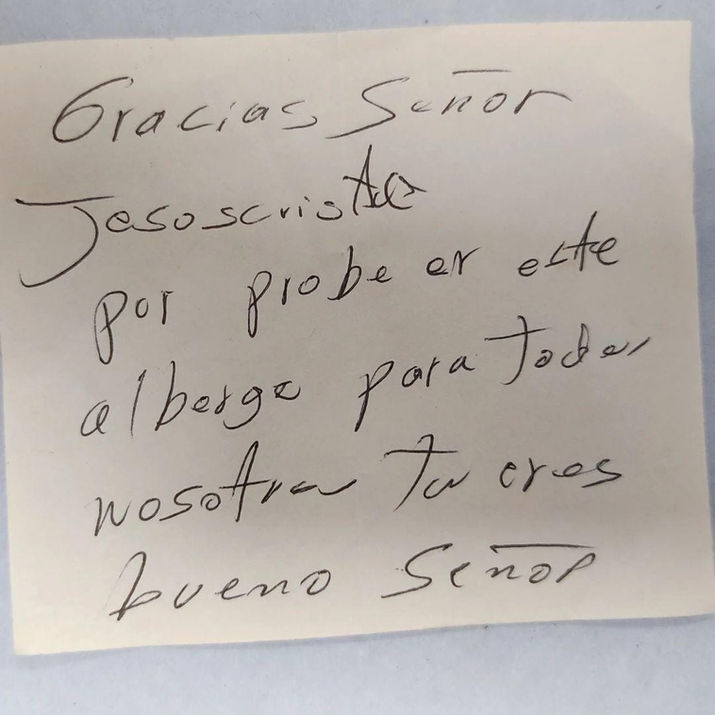 Gracias Señor
Jesoscristo
por probe er este
alberge para Todos
nosotros Tu eres
bueno Señor